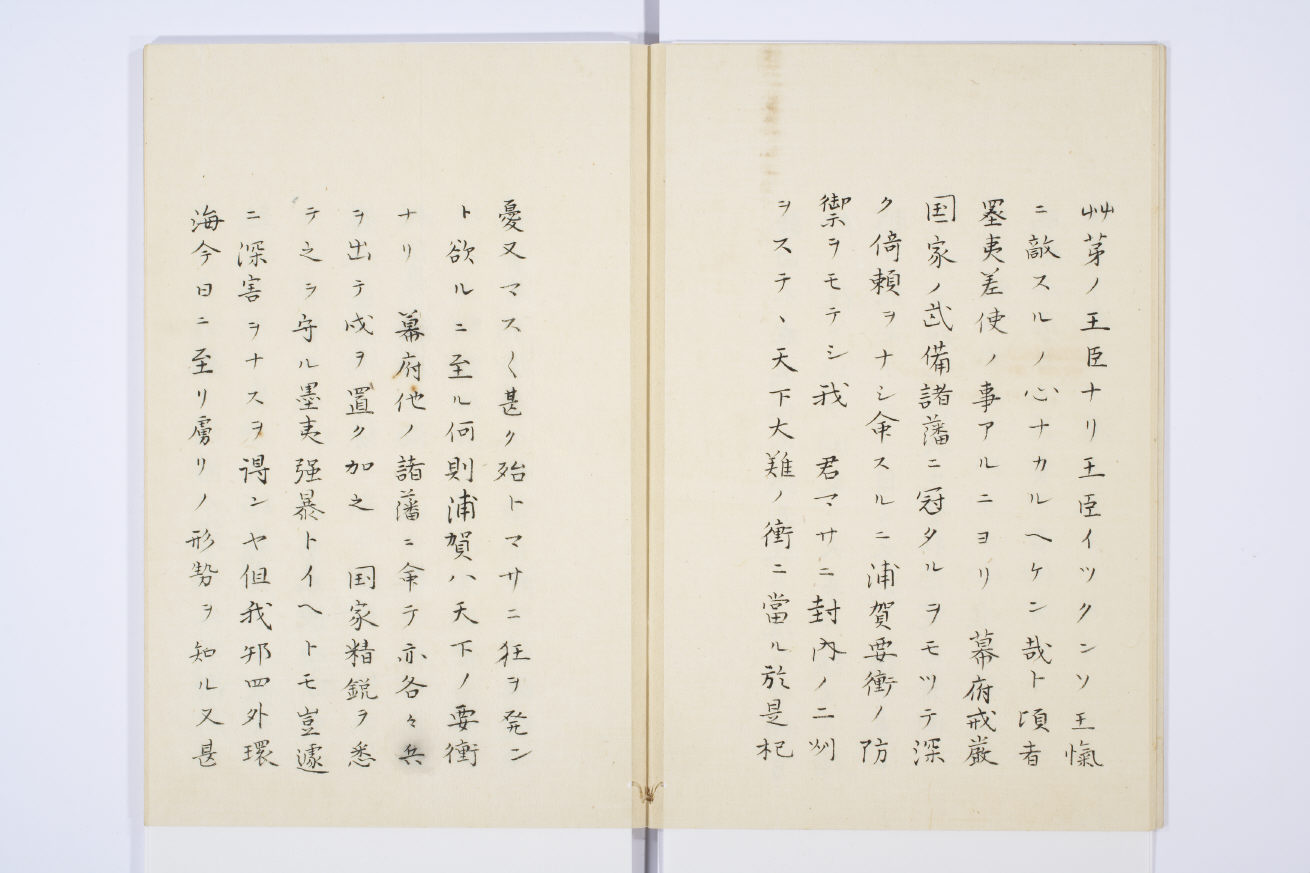 艸茅ノ王臣ナリ王臣イツクンソ王愾
ニ敵スルノ心ナカルヘケン哉ト頃者
墨夷差使ノ事アルニヨリ　幕府戒厳
国家ノ武備諸藩ニ冠タルヲモツテ深
ク倚頼ヲナシ命スルニ浦賀要衝ノ防
禦ヲモテシ我　君マサニ封内ノ二州
ヲステ、天下大難ノ衝ニ當ル於是杞
憂又マス〱甚ク殆トマサニ狂ヲ発ン
ト欲ルニ至ル何則浦賀ハ天下ノ要衝
ナリ　幕府他ノ諸藩ニ命テ亦各々兵
ヲ出テ戍ヲ置ク加之　国家精鋭ヲ悉
テ之ヲ守ル墨夷强暴トイヘトモ豈遽
ニ深害ヲナスヲ得ンヤ但我邦四外環
海今日ニ至リ虜リノ形勢ヲ知ル又甚